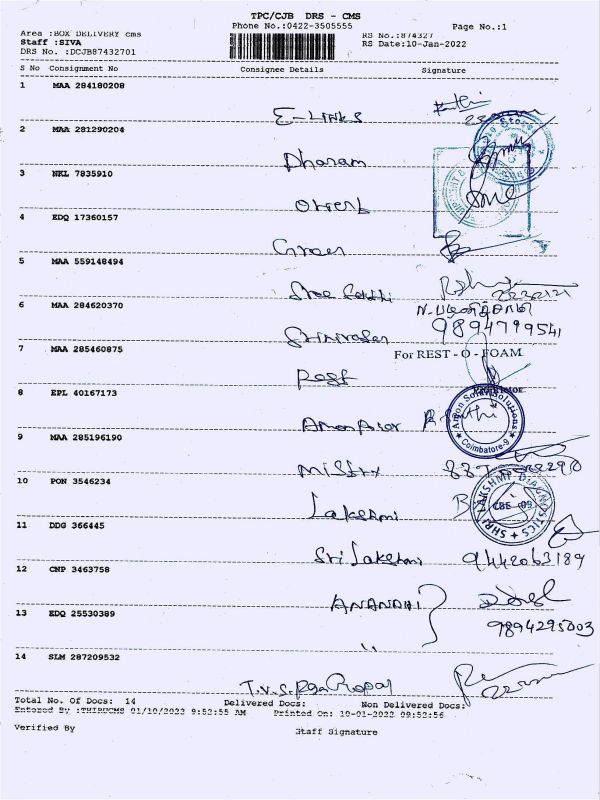 TPC/CJB DRS - CMS
Phone No.:0422-3505555
Page No.:1
Area :BOX DELIVERY cms
Staff :SIVA
DRS No. :DCJB87432701
RS No.:874327
RS Date:10-Jan-2022
S No Consignment No Consignee Details Signature
1 MAA 284180208
E-LINKS
2 MAA 281290204
Dharam
3 NKL 7835910
Orient
4 EDQ 17360157
Green
5 MAA 559148494
Sree Sakthi
6 MAA 284620370
Srinivasan
9894799541
7 MAA 285460875
For REST-O-FOAM
Rest
8 EPL 40167173
Amon Solar
Amon Solar Solutions
Coimbatore-9
9 MAA 285196190
10 PON 3546234
Lakshmi
SHRI LAKSHMI DIAGNOSTICS
CBE - 09
11 DDG 366445
Sri Lakshmi 9442063189
12 CNP 3463758
ANANDHI
13 EDQ 25530389
9894295003
"
14 SLM 287209532
Total No. Of Docs: 14 Delivered Docs: Non Delivered Docs:
Entered By :THIRUCMS 01/10/2022 9:52:55 AM Printed On: 10-01-2022 09:52:56
Verified By Staff Signature